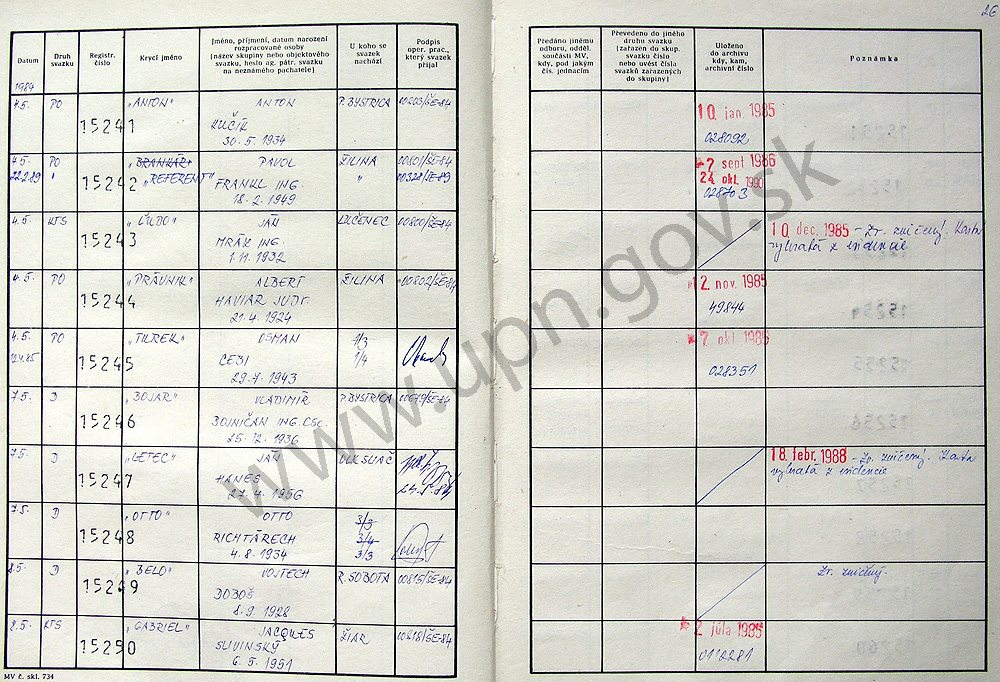 26
Datum
Druh svazku
Registr. číslo
Krycí jméno
Jméno, příjmení, datum narození
rozpracované osoby
(název skupiny nebo objektového
svazku, heslo ag. pátr. svazku
na neznámého pachatele)
U koho se
svazek
nachází
Podpis
oper. prac.,
který svazek
přijal
Předáno jinému
odboru, odděl.
součásti MV,
kdy, pod jakým
čís. jednacím
Převedeno do jiného
druhu svazku
(zařazen do skup.
svazku číslo
nebo uvést čísla
svazků zařazených
do skupiny)
Uloženo
do archivu
kdy, kam,
archivní číslo
Poznámka
1984
4.5. PO 15241 "ANTON" ANTON P. BYSTRICA 00803/ŠE-84 10. jan. 1985
KUČÍK 028092
30.5.1934
4.5. PO 15242 "BRANKÁŘ" PAVOL ŽILINA 00801/ŠE-84 7 sept 1986
22.2.89 " "REFERENT" FRANKL ING " 00328/ŠE-89 24. okt. 1990
18.2.1949 028703
4.5. KTS 15243 "ĽUDO" JÁN LUČENEC 00800/ŠE-84 10. dec. 1985 - Zv. zničený. Karta
MRÁZ ING. vybratá z evidencie
1.11.1932
4.5. PO 15244 "PRÁVNIK" ALBERT ŽILINA 00802/ŠE-84 12. nov. 1985
HAVIAR JUDr 49844
21.4.1924
4.5. PO 15245 "TUREK" OSMAN 1/3 7 okt 1985
85 CEBI 1/4 028351
29.7.1943
7.5. D 15246 "BOJAR" VLADIMÍR P. BYSTRICA 00679/ŠE-84
BOJNIČAN ING. CSc.
25.12.1936
7.5. D 15247 "LETEC" JÁN SLIAČ 18. febr. 1988 - Zv. zničený. Karta
HANES vybratá z evidencie
27.4.1956
7.5. D 15248 "OTTO" OTTO 3/3
RICHTÁRECH 3/4
4.8.1934 3/3
8.5. D 15249 "BELO" VOJTECH R. SOBOTA 00815/ŠE-84 Zv. zničený.
DOBOŠ
8.9.1928
8.5. KTS 15250 "GABRIEL" JACQUES ŽIAR 00818/ŠE-84 2. júla 1985
SLIVINSKÝ 0112281
6.5.1951
MV č. skl. 734
www.upn.gov.sk